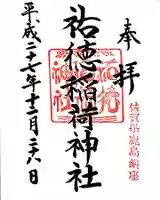 奉拝
佐賀県鹿島鎮座
祐徳稲荷神社
平成二十七年十二月二十六日